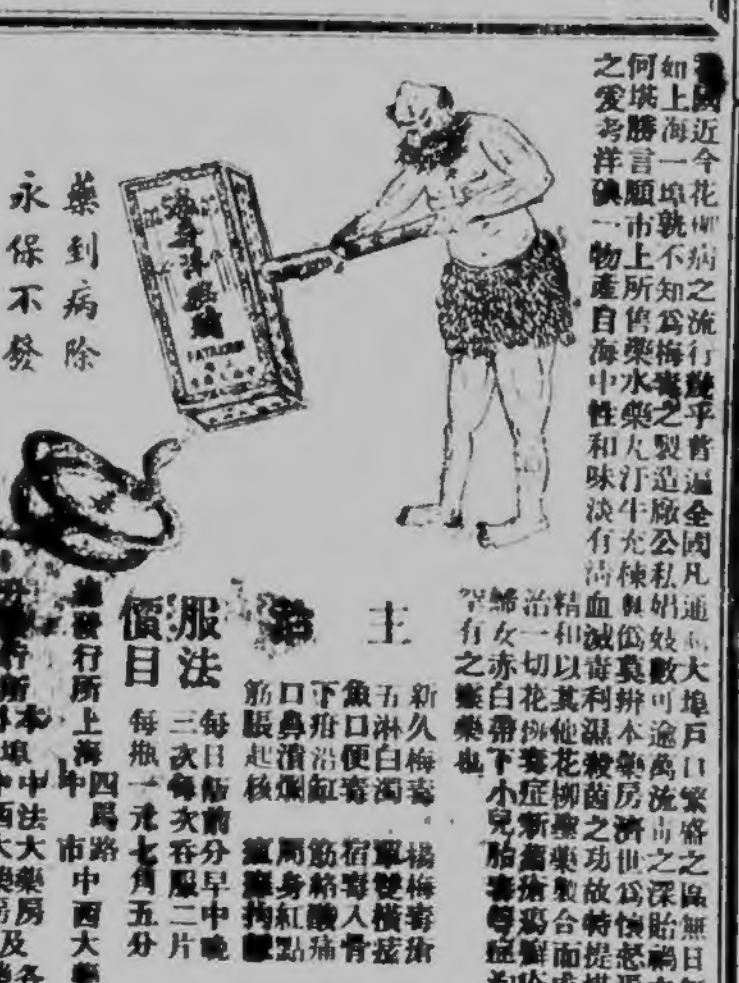 我國近今花柳病之流行幾乎普遍全國凡通商大埠戶口繁盛之區無日
如上海一埠孰不知爲梅毒之製造廠公私娼妓數可逾萬流毒之深貽禍
何堪勝言顧市上所售藥水藥丸汗牛充棟眞僞莫辨本藥房濟世爲懷
之愛考洋碘一物產自海中性和味淡有清血滅毒利濕殺菌之功故特提
精和以其他花柳聖藥數合而成
治一切花柳毒症新舊
婦女赤白帶下小兒胎毒等症
罕有之聖藥也
藥到病除
永保不發
主治
新久梅毒 楊梅毒瘡
五淋白濁 單雙橫痃
魚口便毒 宿毒入骨
下疳沿缸 筋絡酸痛
口鼻潰爛 周身紅點
筋脹起核
服法
每日飯前分早中晚
三次每次吞服二片
價目
每瓶一元七角五分
總發行所上海四馬路中市中西大藥
分行所本埠中法大藥房及各
中西大藥房